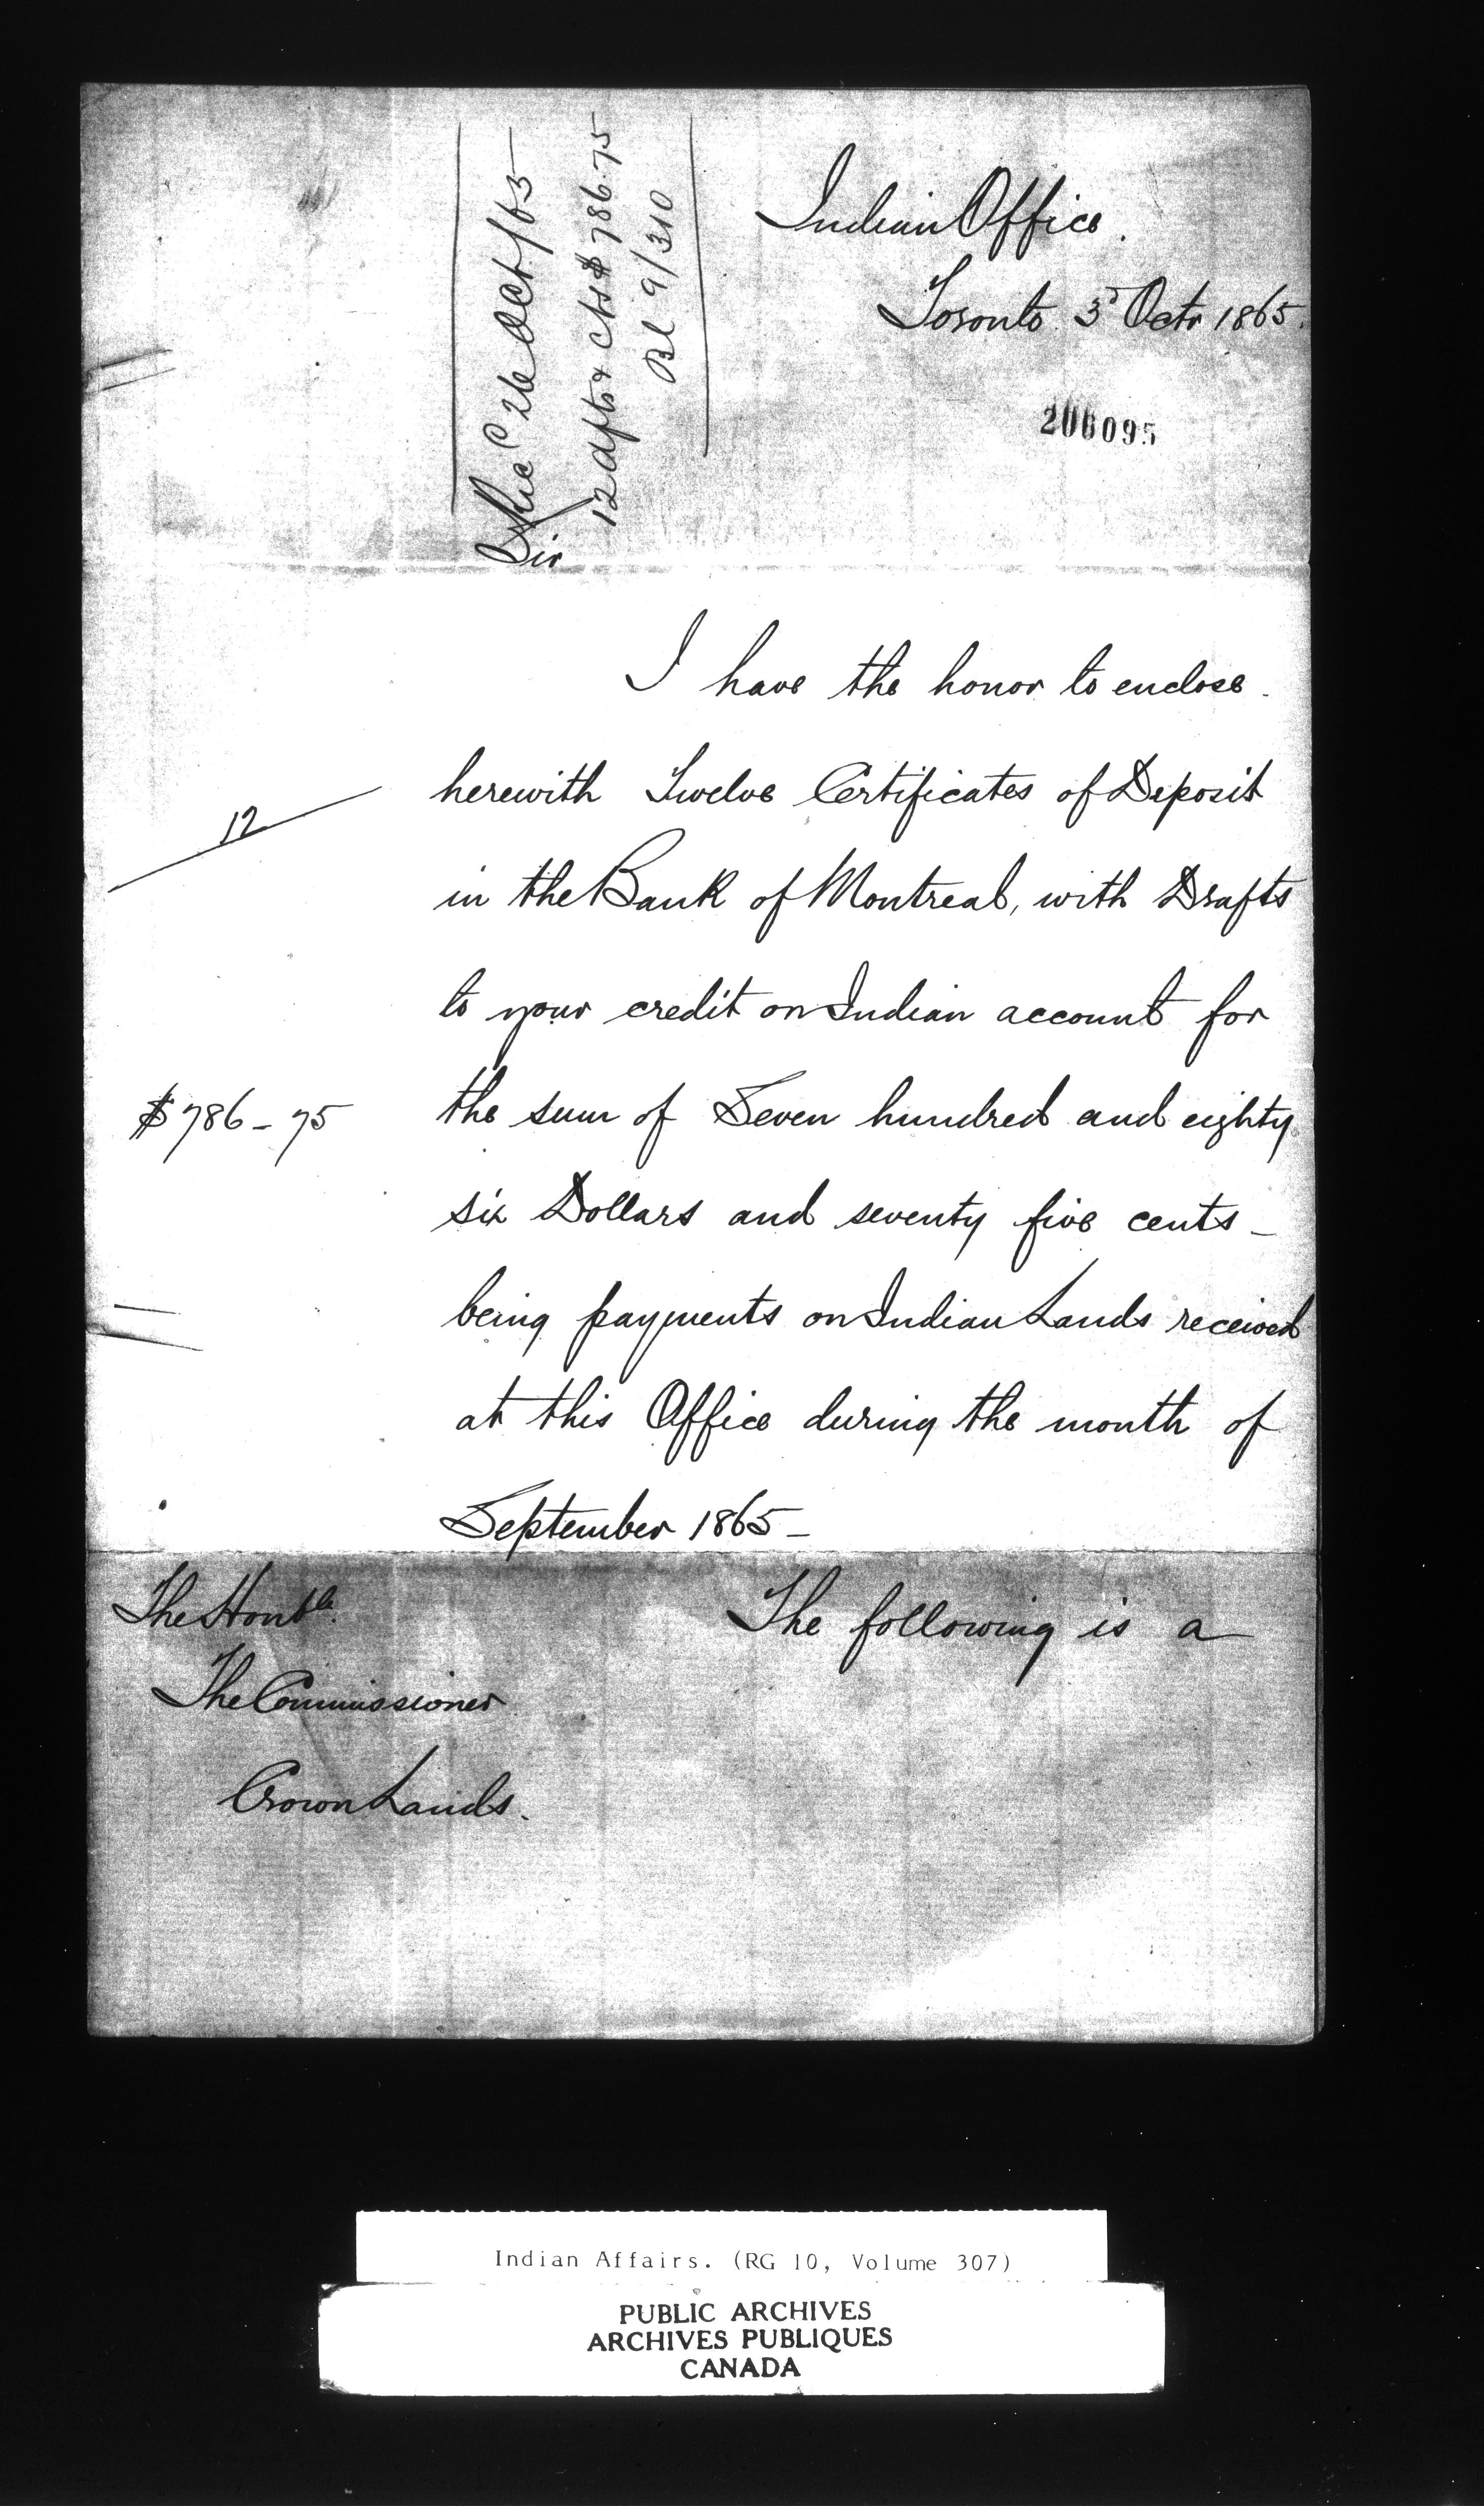 Indian Office.
Toronto 3d Octr 1865.
206095
Rec 26 Oct/65
12 dfts & cts $786.75
Bl 9/310
Sir
I have the honor to enclose
herewith Twelve Certificates of Deposit
12
in the Bank of Montreal, with Drafts
to your credit on Indian account for
$786-75
the sum of Seven hundred and eighty
six Dollars and seventy five cents -
being payments on Indian Lands received
at this Office during the month of
September 1865-
The Honble.
The following is a
The Commissioner
Crown Lands.
Indian Affairs. (RG 10, Volume 307)
PUBLIC ARCHIVES
ARCHIVES PUBLIQUES
CANADA